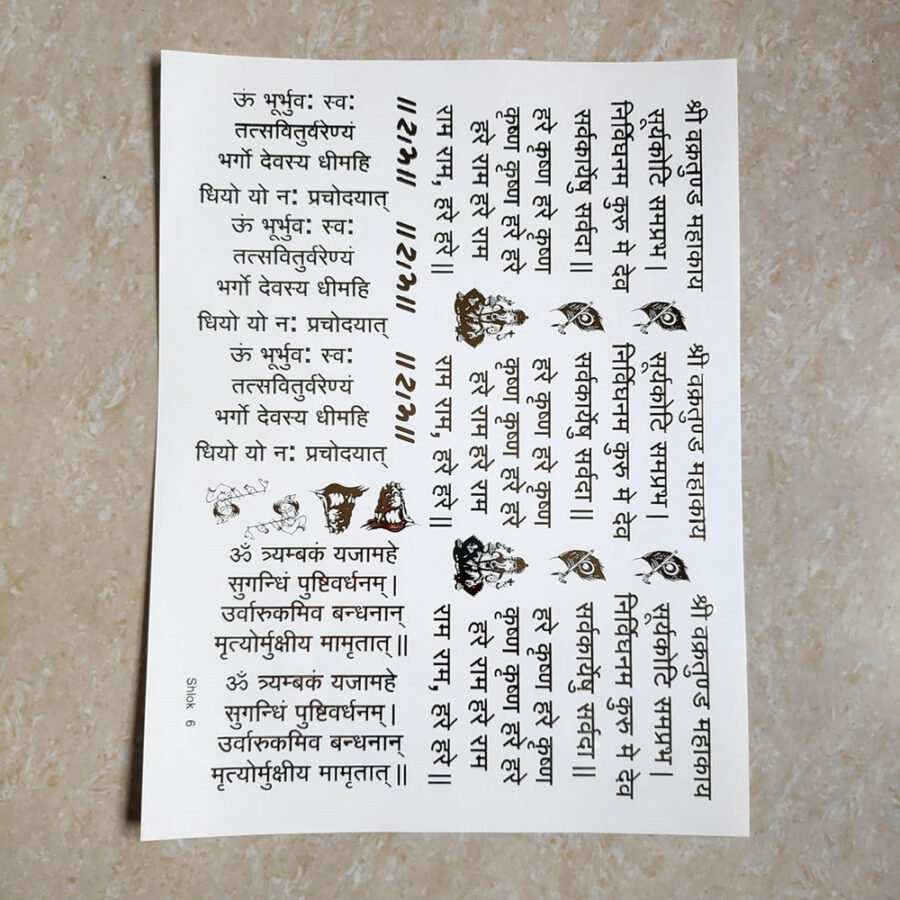 ऊं भूर्भुव: स्व:
तत्सवितुर्वरेण्यं
भर्गो देवस्य धीमहि
धियो यो न: प्रचोदयात्
ऊं भूर्भुव: स्व:
तत्सवितुर्वरेण्यं
भर्गो देवस्य धीमहि
धियो यो न: प्रचोदयात्
ऊं भूर्भुव: स्व:
तत्सवितुर्वरेण्यं
भर्गो देवस्य धीमहि
धियो यो न: प्रचोदयात्
ॐ त्र्यम्बकं यजामहे
सुगन्धिं पुष्टिवर्धनम्।
उर्वारुकमिव बन्धनान्
मृत्योर्मुक्षीय मामृतात्॥
ॐ त्र्यम्बकं यजामहे
सुगन्धिं पुष्टिवर्धनम्।
उर्वारुकमिव बन्धनान्
मृत्योर्मुक्षीय मामृतात्॥
Shlok 6
॥राम॥
॥राम॥
॥राम॥
श्री वक्रतुण्ड महाकाय
सुर्यकोटि समप्रभ।
निर्विघनम कुरु मे देव
सर्वकार्येषु सर्वदा॥
हरे कृष्ण हरे कृष्ण
कृष्ण कृष्ण हरे हरे
हरे राम हरे राम
राम राम, हरे हरे॥
श्री वक्रतुण्ड महाकाय
सुर्यकोटि समप्रभ।
निर्विघनम कुरु मे देव
सर्वकार्येषु सर्वदा॥
हरे कृष्ण हरे कृष्ण
कृष्ण कृष्ण हरे हरे
हरे राम हरे राम
राम राम, हरे हरे॥
श्री वक्रतुण्ड महाकाय
सुर्यकोटि समप्रभ।
निर्विघनम कुरु मे देव
सर्वकार्येषु सर्वदा॥
हरे कृष्ण हरे कृष्ण
कृष्ण कृष्ण हरे हरे
हरे राम हरे राम
राम राम, हरे हरे॥